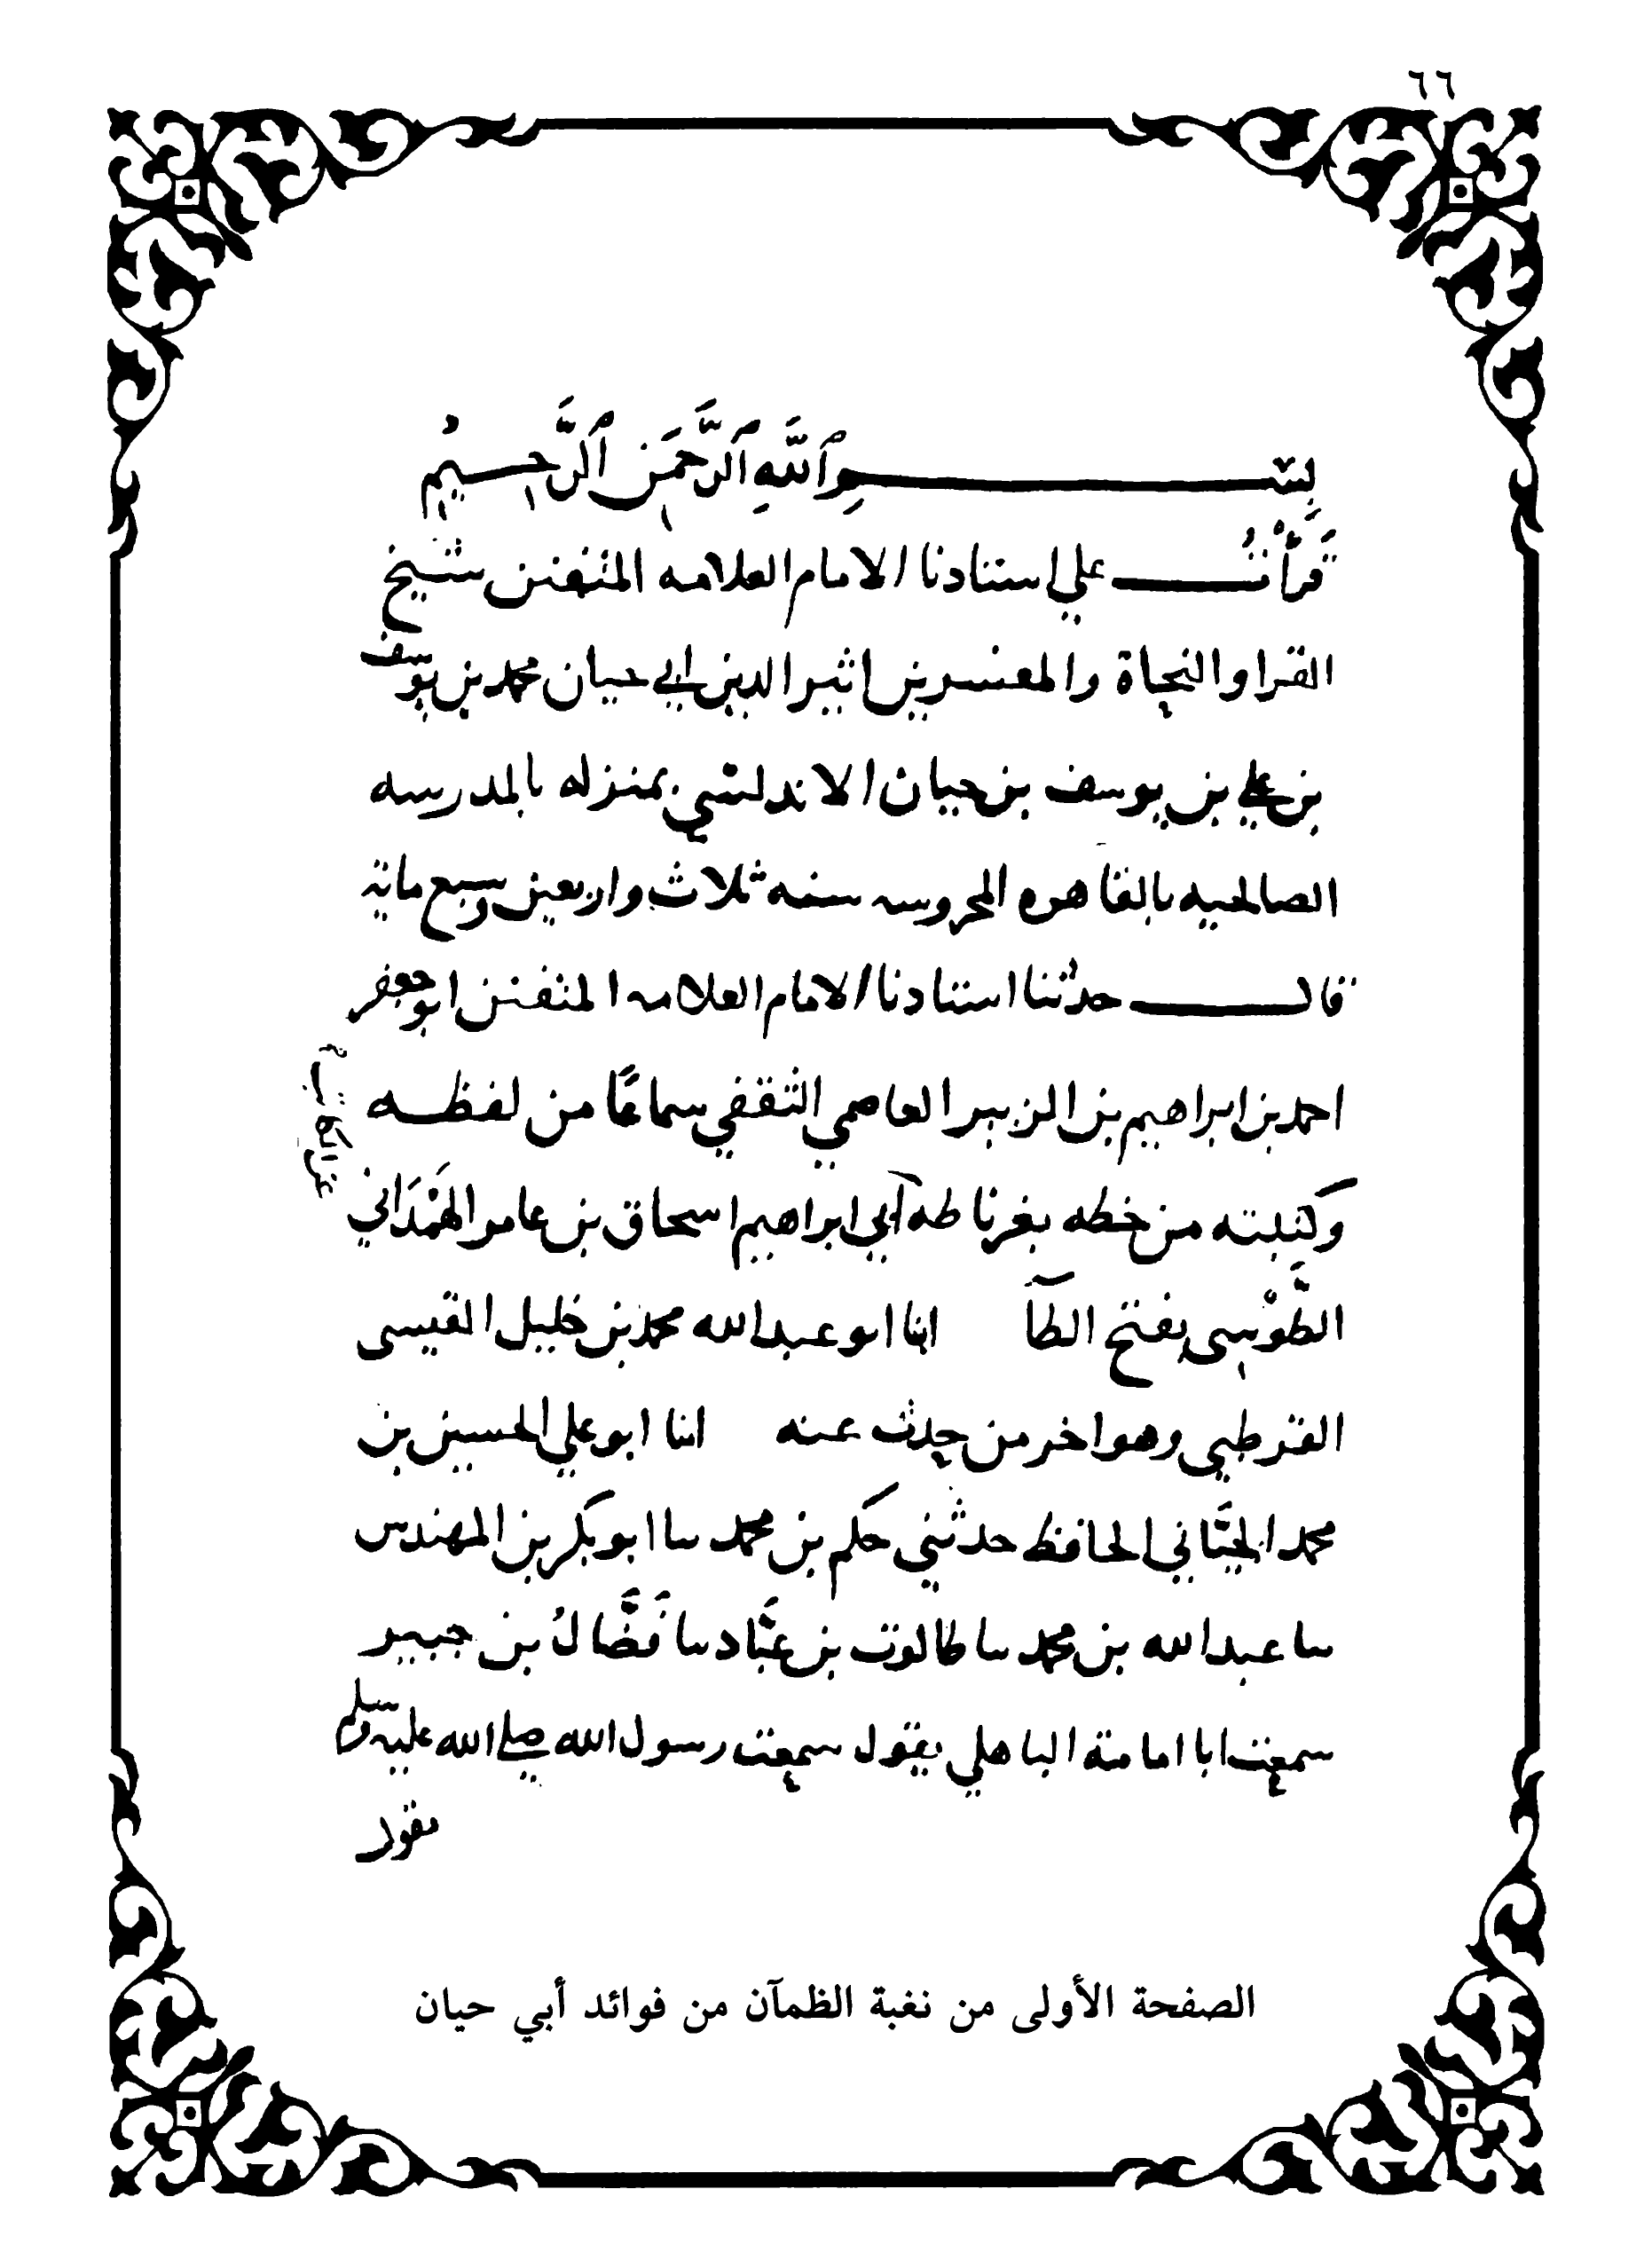 ٦٦
بِسْمِ اللَّهِ الرَّحْمَنِ الرَّحِيمِ
قرأتُ علي استاذنا الامام العلامه المتفنن شيخ
القرا والنحاة والمفسرين اثير الدين ابي حيان محمد بن يوسف
بن علي بن يوسف بن حيان الاندلسي بمنزله بالمدرسه
الصالحيه بالقاهره المحروسه سنه ثلاث واربعين وسبع ماية
قال حدثنا استاذنا الامام العلامه المتفنن ابو جعفر
احمد بن ابراهيم بن الزبير العاصمي الثقفي سماعًا من لفظه
وكتبته من خطه بغرناطه ابي ابراهيم اسحاق بن عامر الهَمْدَاني
الطَّوْسي بفتح الطآ انبا ابو عبد الله محمد بن خليل القيسي
القرطبي وهو اخر من حدث عنه انبا ابو علي الحسين بن
محمد الجَيَّاني الحافظ حدثني حكم بن محمد سا ابو بكر بن المهندس
سا عبد الله بن محمد سا طالوت بن عبَّاد سا فَضَّالُ بن جبير
سمعت ابا امامة الباهلي يقول سمعت رسول الله صلي الله عليه وسلم
يقول
الصفحة الأولى من نغبة الظمآن من فوائد أبي حيان